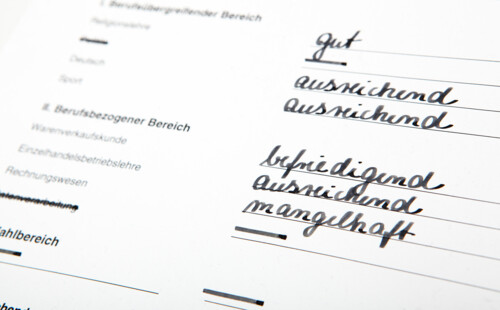 I. Berufsübergreifender Bereich
Religionslehre gut
Deutsch ausreichend
Sport ausreichend
II. Berufsbezogener Bereich
Warenverkaufskunde befriedigend
Einzelhandelsbetriebslehre ausreichend
Rechnungswesen mangelhaft
ahlbereich